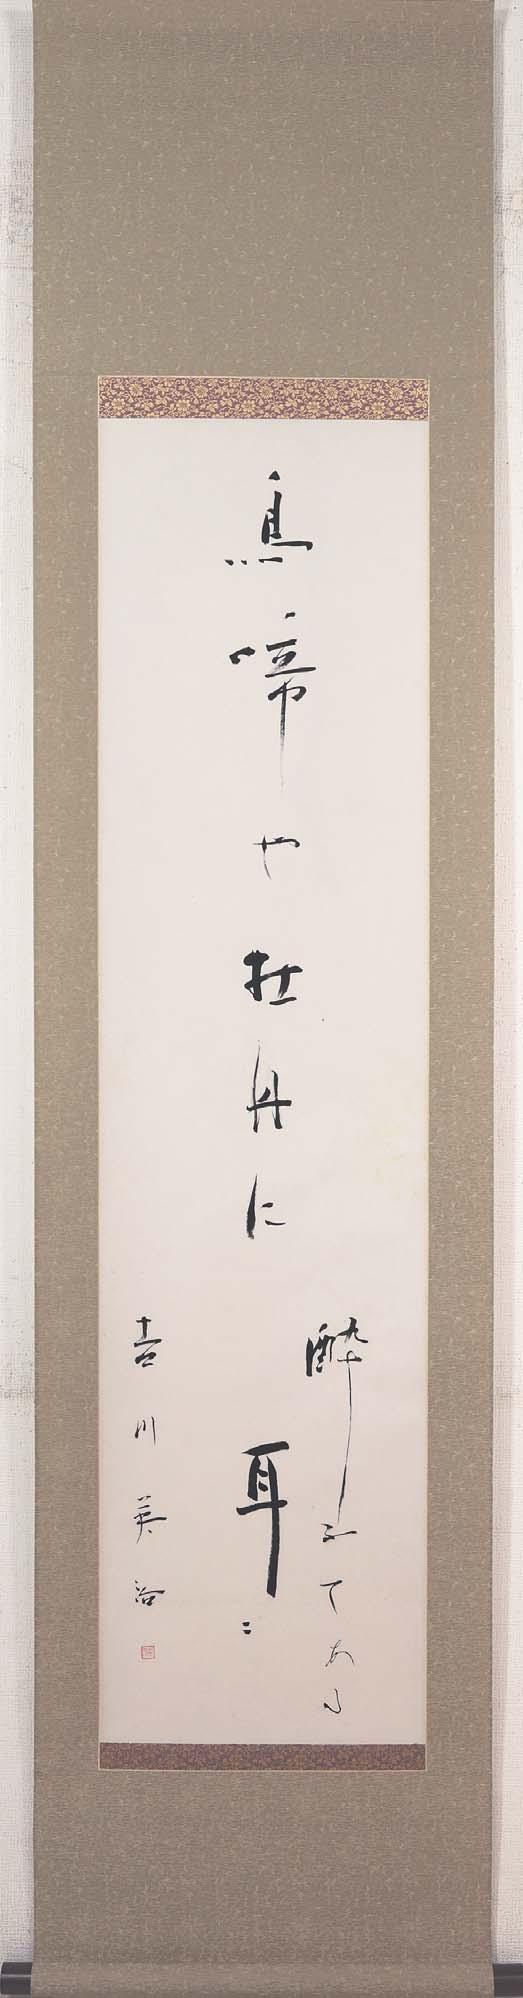 鳥啼や牡丹に
酔ふてある
耳ニ
吉川英治